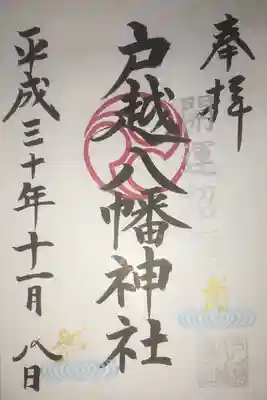 奉拝
開運
戸越八幡神社
平成三十年十一月八日